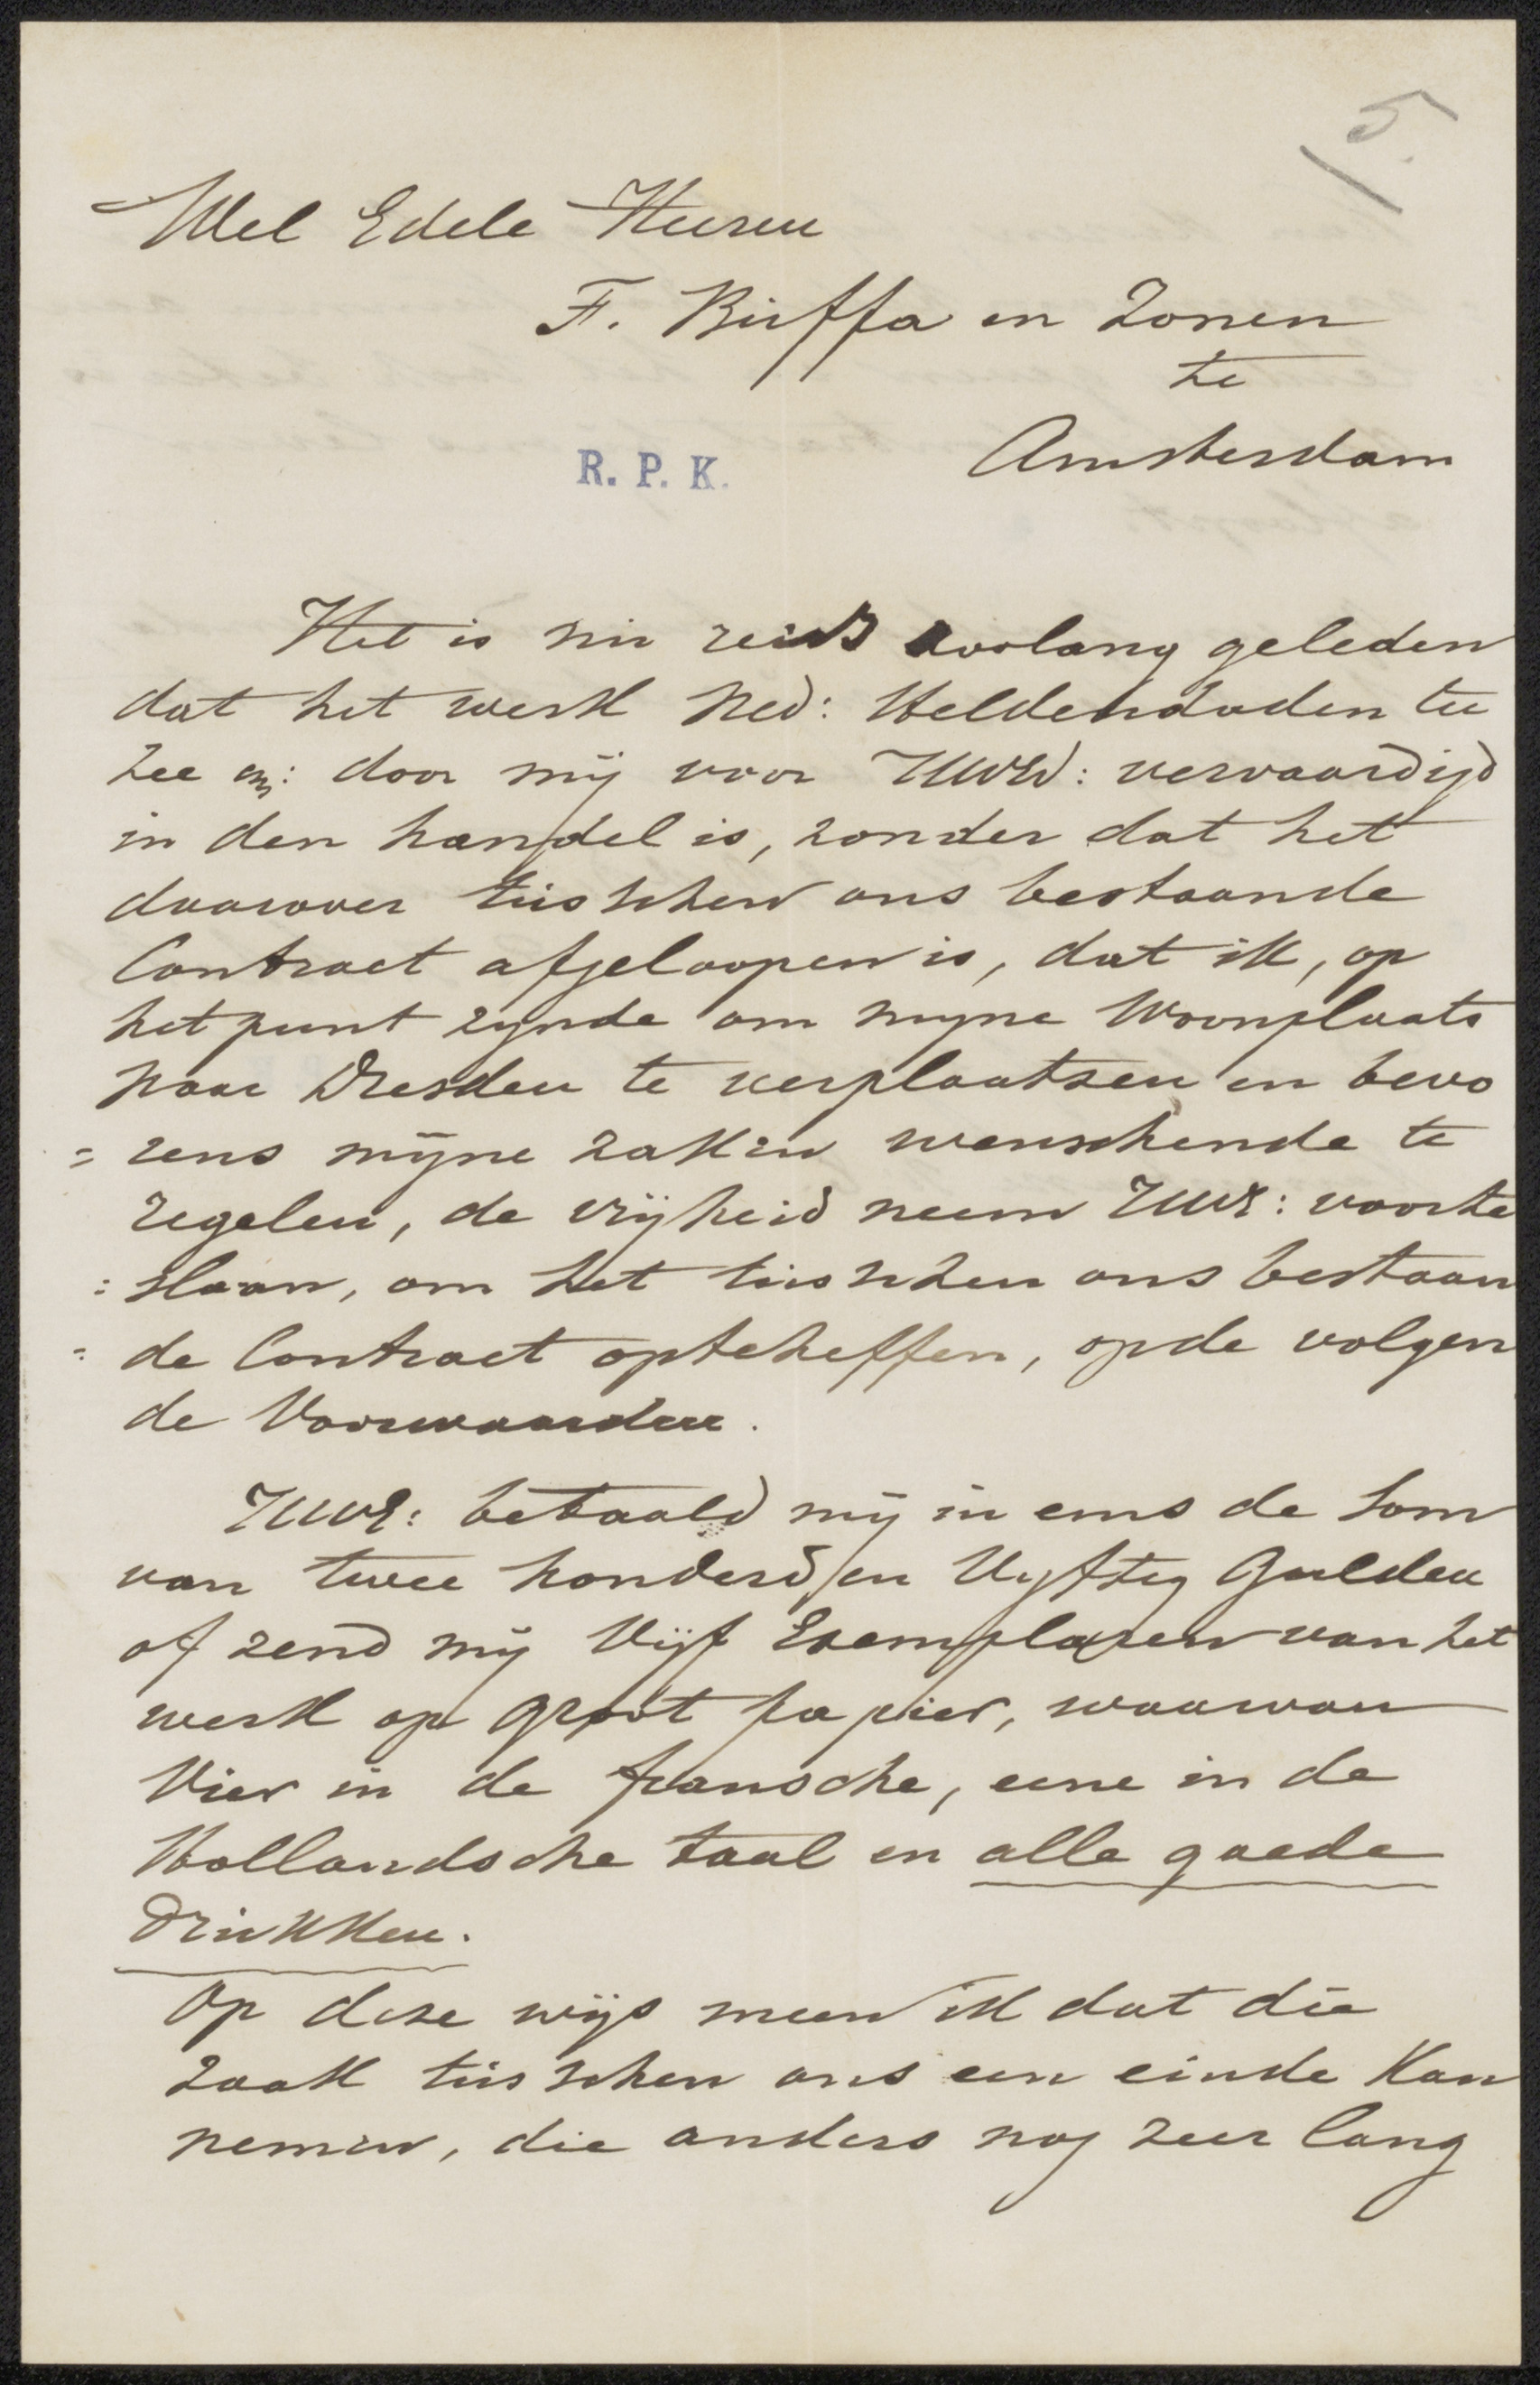 5.
Wel Edele Heeren
F. Buffa en Zonen
te
Amsterdam
R. P. K.
Het is nu reids zoolang geleden
dat het werk Ned: Heldendaden ter
Zee door mij voor UWE: vervaardigd
in den handel is, zonder dat het
daarover tusschen ons bestaande
Contract afgeloopen is, dat ik, op
het punt zynde om myne Woonplaats
naar Dresden te verplaatsen en bevo
= rens mijne zaken wenschende te
regelen, de vrijheid neem UWE: voorte
: slaan, om het tusschen ons bestaan
= de Contract opteheffen, op de volgen
de Voorwaarden.
UWE: betaald mij in eens de Som
van twee honderd en Vyftig Gulden
of zend mij Vijf Exemplaren van het
werk op groot papier, waarvan
Vier in de fransche, eene in de
Hollandsche taal en alle goede
drukken.
Op deze wijs meen ik dat die
zaak tusschen ons een einde kan
nemen, die anders nog zeer lang